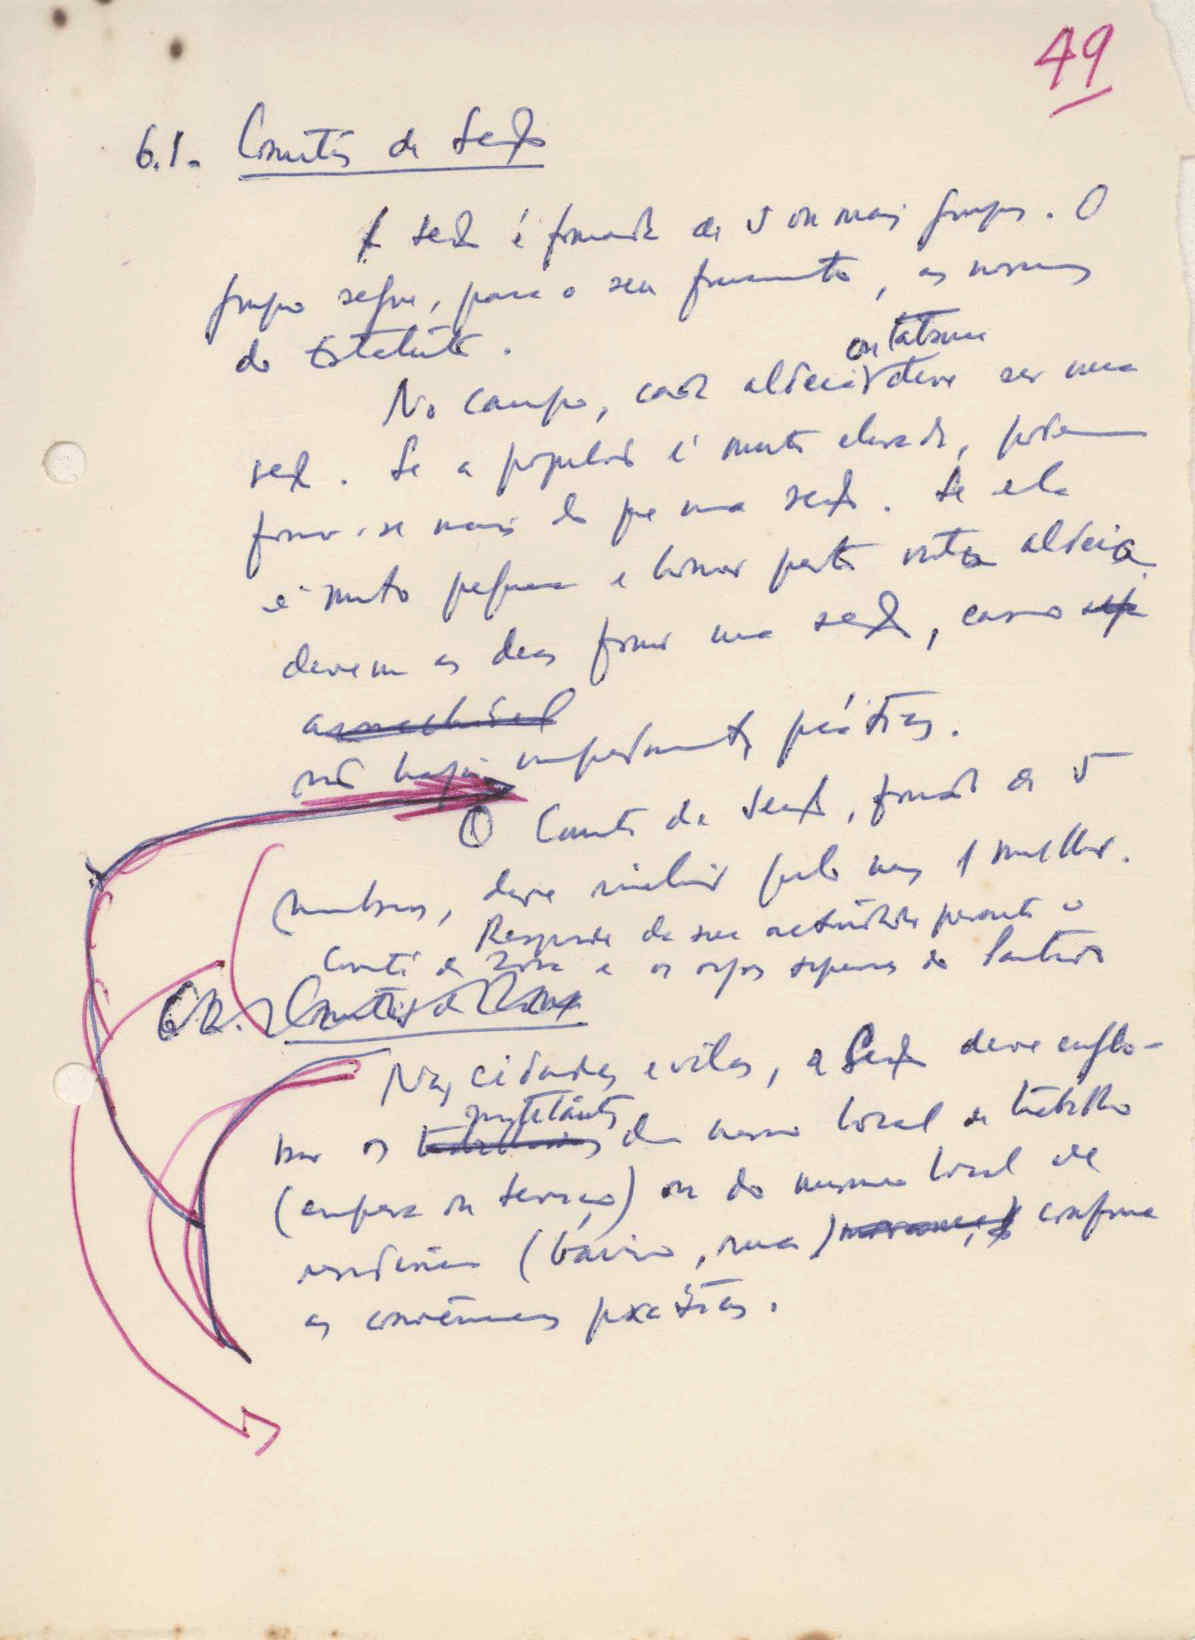 49
6.1. Comités de Secção
A secção é formada de 5 ou mais grupos. O
grupo segue, para o seu funcionamento, as normas
do Estatuto.
No campo, cada aldeia ou tabanca deve ser uma
secção. Se a população é muito elevada, podem
formar-se mais do que uma secção. Se ela
é muito pequena e houver perto outra aldeia
devem as duas formar uma secção, caso
não haja impedimentos práticos.
O Comité de Secção, formado de 5
membros, deve incluir pelo menos 1 mulher.
Responde da sua actividade perante o
Comité de Zona e os orgãos superiores do Partido
6.2. Comités de Zona
Nas cidades e vilas, a Secção deve englo-
bar os militantes do mesmo local de trabalho
(empresa ou serviço) ou do mesmo local de
residência (bairro, rua) conforme
as conveniências práticas.